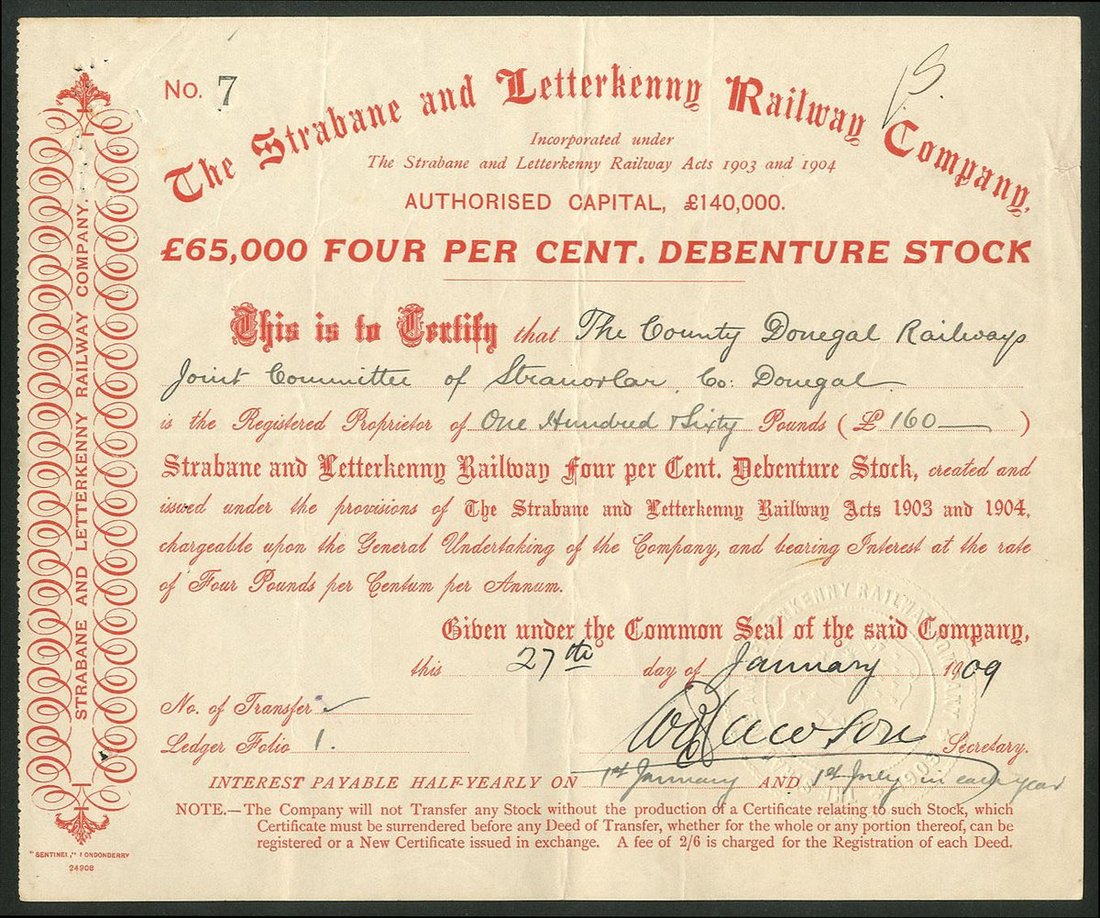 No. 7
The Strabane and Letterkenny Railway Company,
Incorporated under
The Strabane and Letterkenny Railway Acts 1903 and 1904
AUTHORISED CAPITAL, £140,000.
£65,000 FOUR PER CENT. DEBENTURE STOCK
This is to Certify that The County Donegal Railways
Joint Committee of Stranorlar, Co: Donegal
is the Registered Proprietor of One Hundred & Sixty Pounds (£ 160 — )
Strabane and Letterkenny Railway Four per Cent. Debenture Stock, created and
issued under the provisions of The Strabane and Letterkenny Railway Acts 1903 and 1904,
chargeable upon the General Undertaking of the Company, and bearing Interest at the rate
of Four Pounds per Centum per Annum.
Given under the Common Seal of the said Company,
this 27th day of January 1909
No. of Transfer
Ledger Folio 1.
Secretary.
INTEREST PAYABLE HALF-YEARLY ON 1st January AND 1st July in each year
NOTE.—The Company will not Transfer any Stock without the production of a Certificate relating to such Stock, which
Certificate must be surrendered before any Deed of Transfer, whether for the whole or any portion thereof, can be
registered or a New Certificate issued in exchange. A fee of 2/6 is charged for the Registration of each Deed.
STRABANE AND LETTERKENNY RAILWAY COMPANY.
"SENTINEL," LONDONDERRY
24908